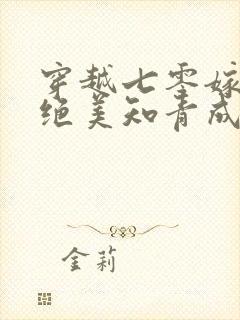 穿越七零嫁
绝美知青成
金莉